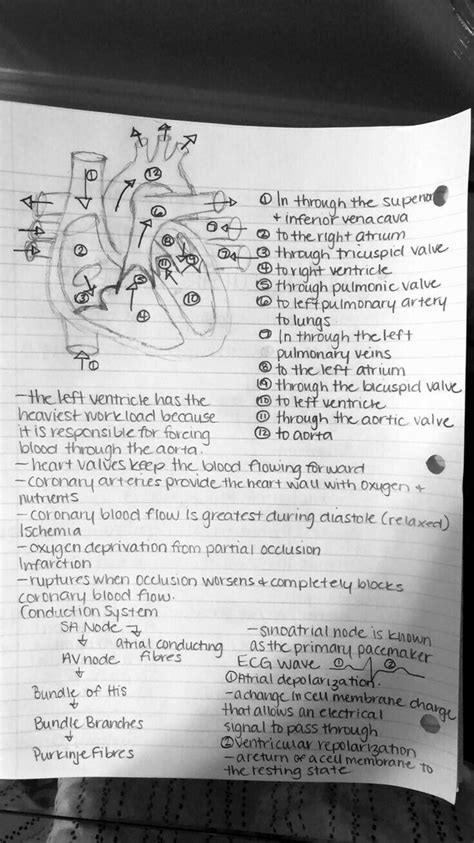 ① In through the superior
+ inferior vena cava
② to the right atrium
③ through tricuspid valve
④ to right ventricle
⑤ through pulmonic valve
⑥ to left pulmonary artery
to lungs
⑦ In through the left
pulmonary veins
⑧ to the left atrium
⑨ through the bicuspid valve
⑩ to left ventricle
⑪ through the aortic valve
⑫ to aorta
① 
② 
③ 
④ 
⑥ 
⑦ 
⑦ 
⑧ 
⑩ 
⑫ 
①
– the left ventricle has the
heaviest workload because
it is responsible for forcing
blood through the aorta.
– heart valves keep the blood flowing forward
– coronary arteries provide the heart wall with oxygen +
nutrients
– coronary blood flow is greatest during diastole (relaxed)
Ischemia
– oxygen deprivation from partial occlusion
Infarction
– ruptures when occlusion worsens + completely blocks
coronary blood flow.
Conduction System
SA Node
atrial conducting
fibres
AV node
Bundle of His
Bundle Branches
Purkinje Fibres
– sinoatrial node is known
as the primary pacemaker
ECG wave ① ②
① Atrial depolarization.
– a change in cell membrane charge
that allows an electrical
signal to pass through
② ventricular repolarization
– a return of a cell membrane to
the resting state